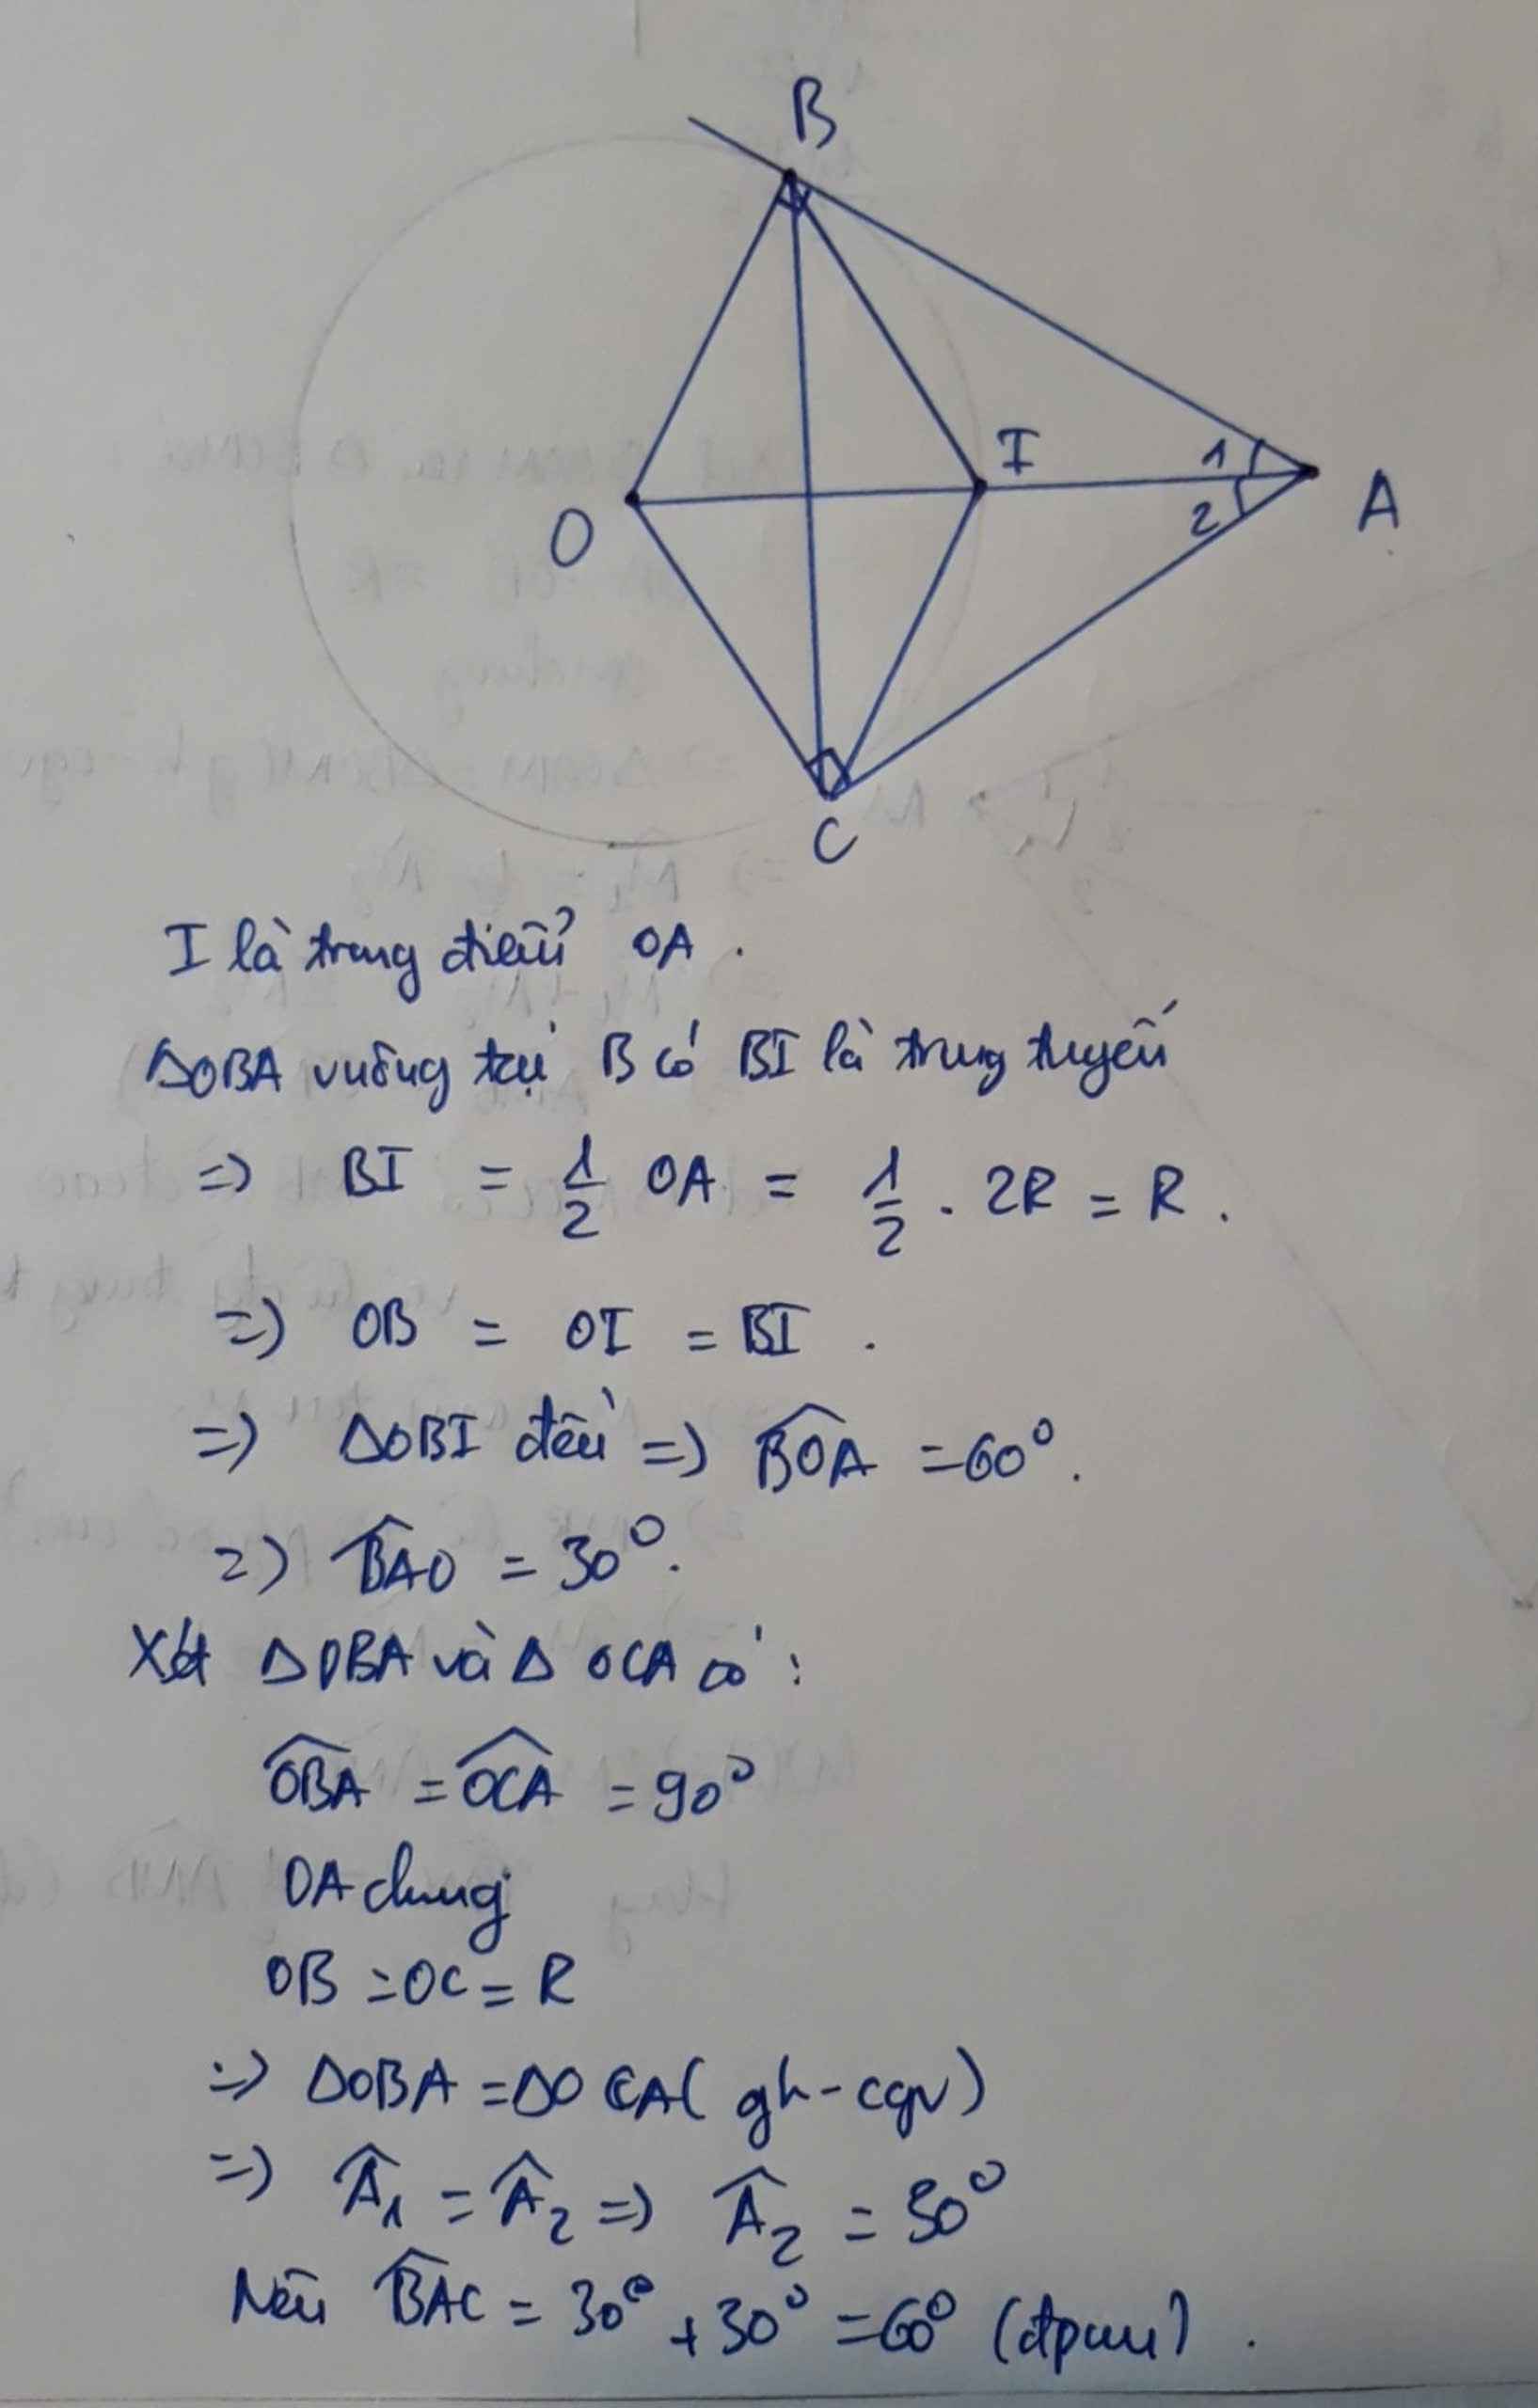 B
I
1
2
A
O
C
I là trung điểm OA .
ΔOBA vuông tại B có BI là trung tuyến
=> BI = 1/2 OA = 1/2 . 2R = R .
=> OB = OI = BI .
=> ΔOBI đều => \widehat{BOA} = 60° .
=> \widehat{BAO} = 30° .
Xét ΔOBA và Δ OCA có :
\widehat{OBA} = \widehat{OCA} = 90°
OA chung
OB = OC = R
=> ΔOBA = ΔOCA ( gh - cgv )
=> \widehat{A}₁ = \widehat{A}₂ => \widehat{A}₂ = 30°
Nên \widehat{BAC} = 30° + 30° = 60° (đpcm) .